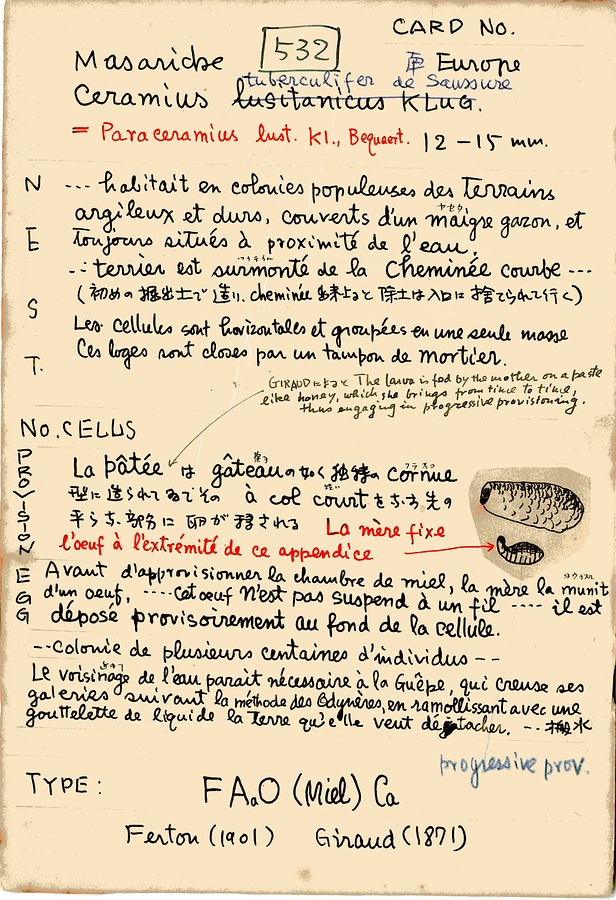 CARD NO.
532
Masaridae 庫 Europe
tuberculifer de Saussure
Ceramius lusitanicus KLUG.
= Paraceramius lust. Kl., Bequaert. 12-15 mm.
NEST.
--- habitait en colonies populeuses des terrains
argileux et durs, couverts d'un maigre gazon, et
ヤセタ
toujours situés à proximité de l'eau.
--- terrier est surmonté de la cheminée courbe ---
(初めの掘出土で造り, cheminée 出来上ると除土は入口に捨てられて行く)
Les cellules sont horizontales et groupées en une seule masse
Ces loges sont closes par un tampon de mortier.
GIRAUDによると The larva is fed by the mother on a paste
like honey, which she brings from time to time,
thus engaging in progressive provisioning.
No. CELLS
PROVISION EGG
La pâtée は gâteauの如く独特の cornue
フラスコ
型に造られてゐてその à col courtをなす先の
平らな部分に卵が移される La mère fixe
l'oeuf à l'extrémité de ce appendice
Avant d'approvisionner la chambre de miel, la mère la munit
d'un oeuf, ---- Cet oeuf n'est pas suspend à un fil ---- il est
déposé provisoirement au fond de la cellule.
-- Colonie de plusieurs centaines d'individus --
Le voisinage de l'eau parait nécessaire à la Guêpe, qui creuse ses
galeries suivant la méthode des Odynères, en ramollissant avec une
gouttelette de liquide la terre qu'elle veut détacher. --- 搬水
progressive prov.
TYPE: FAaO (Miel) Ca
Ferton (1901) Giraud (1871)